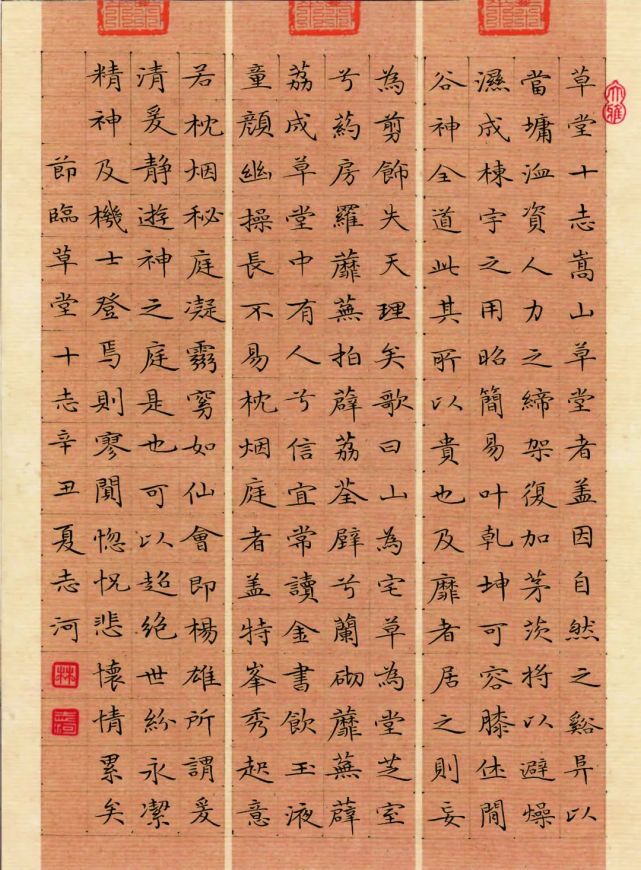 草堂十志嵩山草堂者盖因自然之谿阜以
當墉洫資人力之締架復加茅茨将以避燥
濕成棟宇之用昭簡易叶乾坤可容膝休閒
谷神全道此其所以貴也及靡者居之則妄
為剪飾失天理矣歌曰山為宅草為堂芝室
兮葯房羅蘼蕪拍薜荔荃壁兮蘭砌蘼蕪薜
荔成草堂中有人兮信宜常讀金書飲玉液
童顏幽操長不易枕烟庭者盖特峯秀起意
若枕烟秘庭凝靄窅如仙會即楊雄所謂爰
清爰静遊神之庭是也可以超絶世紛永潔
精神及機士登焉則寥闃惚怳悲懷情累矣
節臨草堂十志辛丑夏志河
林